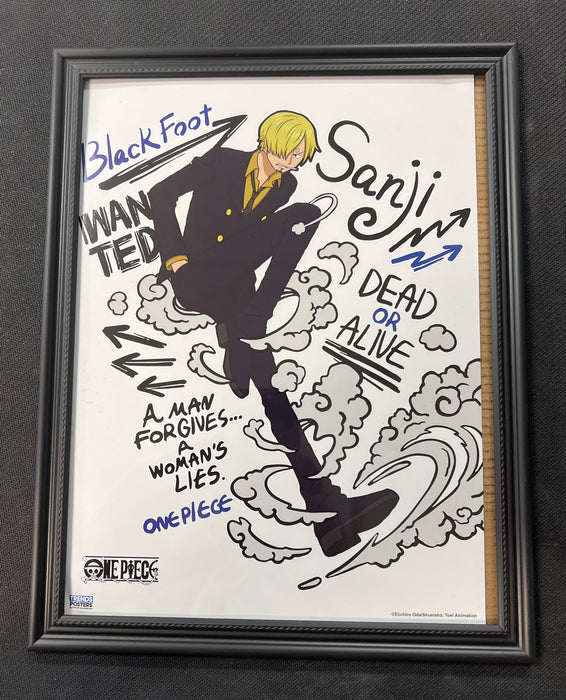 Black Foot
WAN
TED
Sanji
DEAD
OR
ALIVE
A MAN
FORGIVES...
A
WOMAN'S
LIES.
ONE PIECE
ONE PIECE
TRENDS
POSTERS
©Eiichiro Oda/Shueisha, Toei Animation